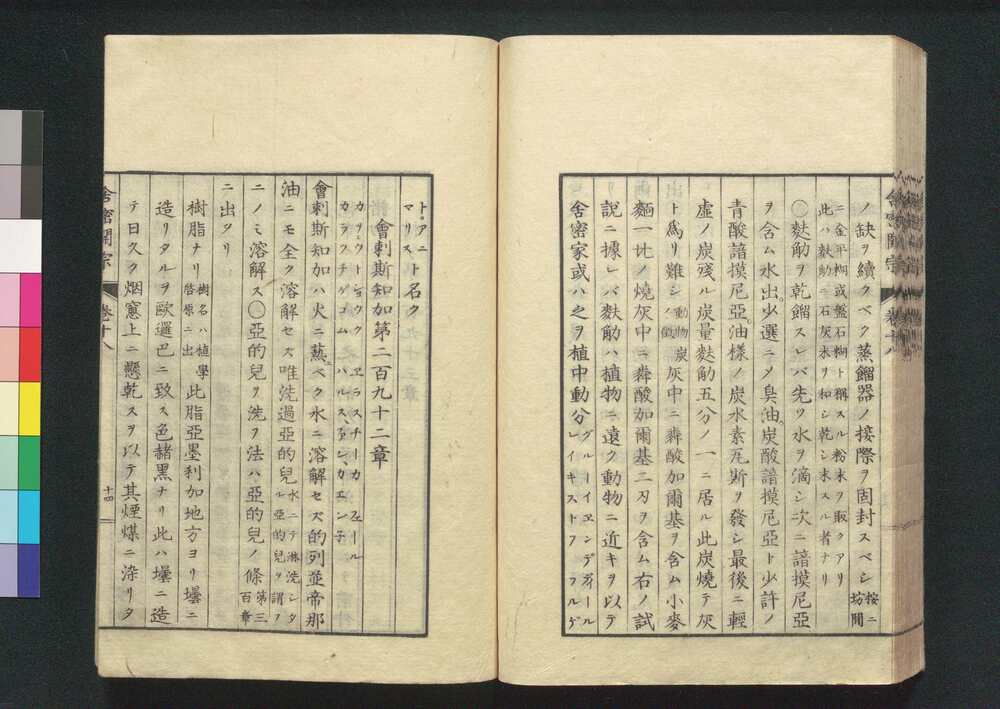 ノ缺ヲ續クベク蒸餾器ノ接際ヲ固封スベシ按ニ坊間
ニ金平糊或盤石糊ト稱スル粉末ヲ取クアリ
此ハ麩觔ニ石灰末ヲ和シ乾シ末スル者ナリ
〇麩觔ヲ乾餾スレバ先ヅ水ヲ滴シ次ニ諳摸尼亞
ヲ含ム水出少選ニメ臭油炭酸諳摸尼亞ト少許ノ
青酸諳摸尼亞油樣ノ炭水素瓦斯ヲ發シ最後ニ輕
虛ノ炭殘ル炭量麩觔五分ノ一ニ居ル此炭燒テ灰
ト爲リ難シ動物炭ノ徵灰中ニ燐酸加爾基ヲ含ム小麥
麵一比ノ燒灰中ニ燐酸加爾基二刄ヲ含ム右ノ試
說ニ據レバ麩觔ハ植物ニ遠ク動物ニ近キヲ以テ
舍密家或ハ之ヲ植中動分グルーイヱンデヂールレイキストフラルゲ
ト、アニマリスト名ク
會剌斯知加第二百九十二章
カヲウトショウク ヱラスチーカ
カラフチゲゴムハルス
會剌斯知加ハ火ニ爇ベク水ニ溶解セズ的列並帝那
油ニモ全ク溶解セズ唯洗過亞的兒水ニテ淋洗シタル亞的兒ヲ謂フ
ニノミ溶解ス〇亞的兒ヲ洗ヲ法ハ亞的兒ノ條第三百章
ニ出タリ
樹脂ナリ樹名ハ植學啓原ニ出此脂亞墨利加地方ヨリ壜ニ
造リタルヲ歐邏巴ニ致ス色赭黑ナリ此ハ壜ニ造
テ日久ク烟窻上ニ懸乾スヲ以テ其煙煤ニ染リタ
舍密開宗 卷十八
十四
舍密開宗 卷十八